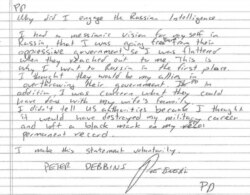 PD
Why did I engage the Russian Intelligence
I had a messianic vision for myself in
Russia, that I was going to free them from their
oppressive government, so I was flattered
when they reached out to me. This is
why I went to Russia in the first place.
I thought they would be my allies in
overthrowing their government. In
addition I was concern what they could
have done with my wife's family.
I didn't tell US authorities because I thought
it would have destroyed my military career
and left a black mark on my
permanent record
I make this statement voluntarily.
PETER DEBBINS
PD